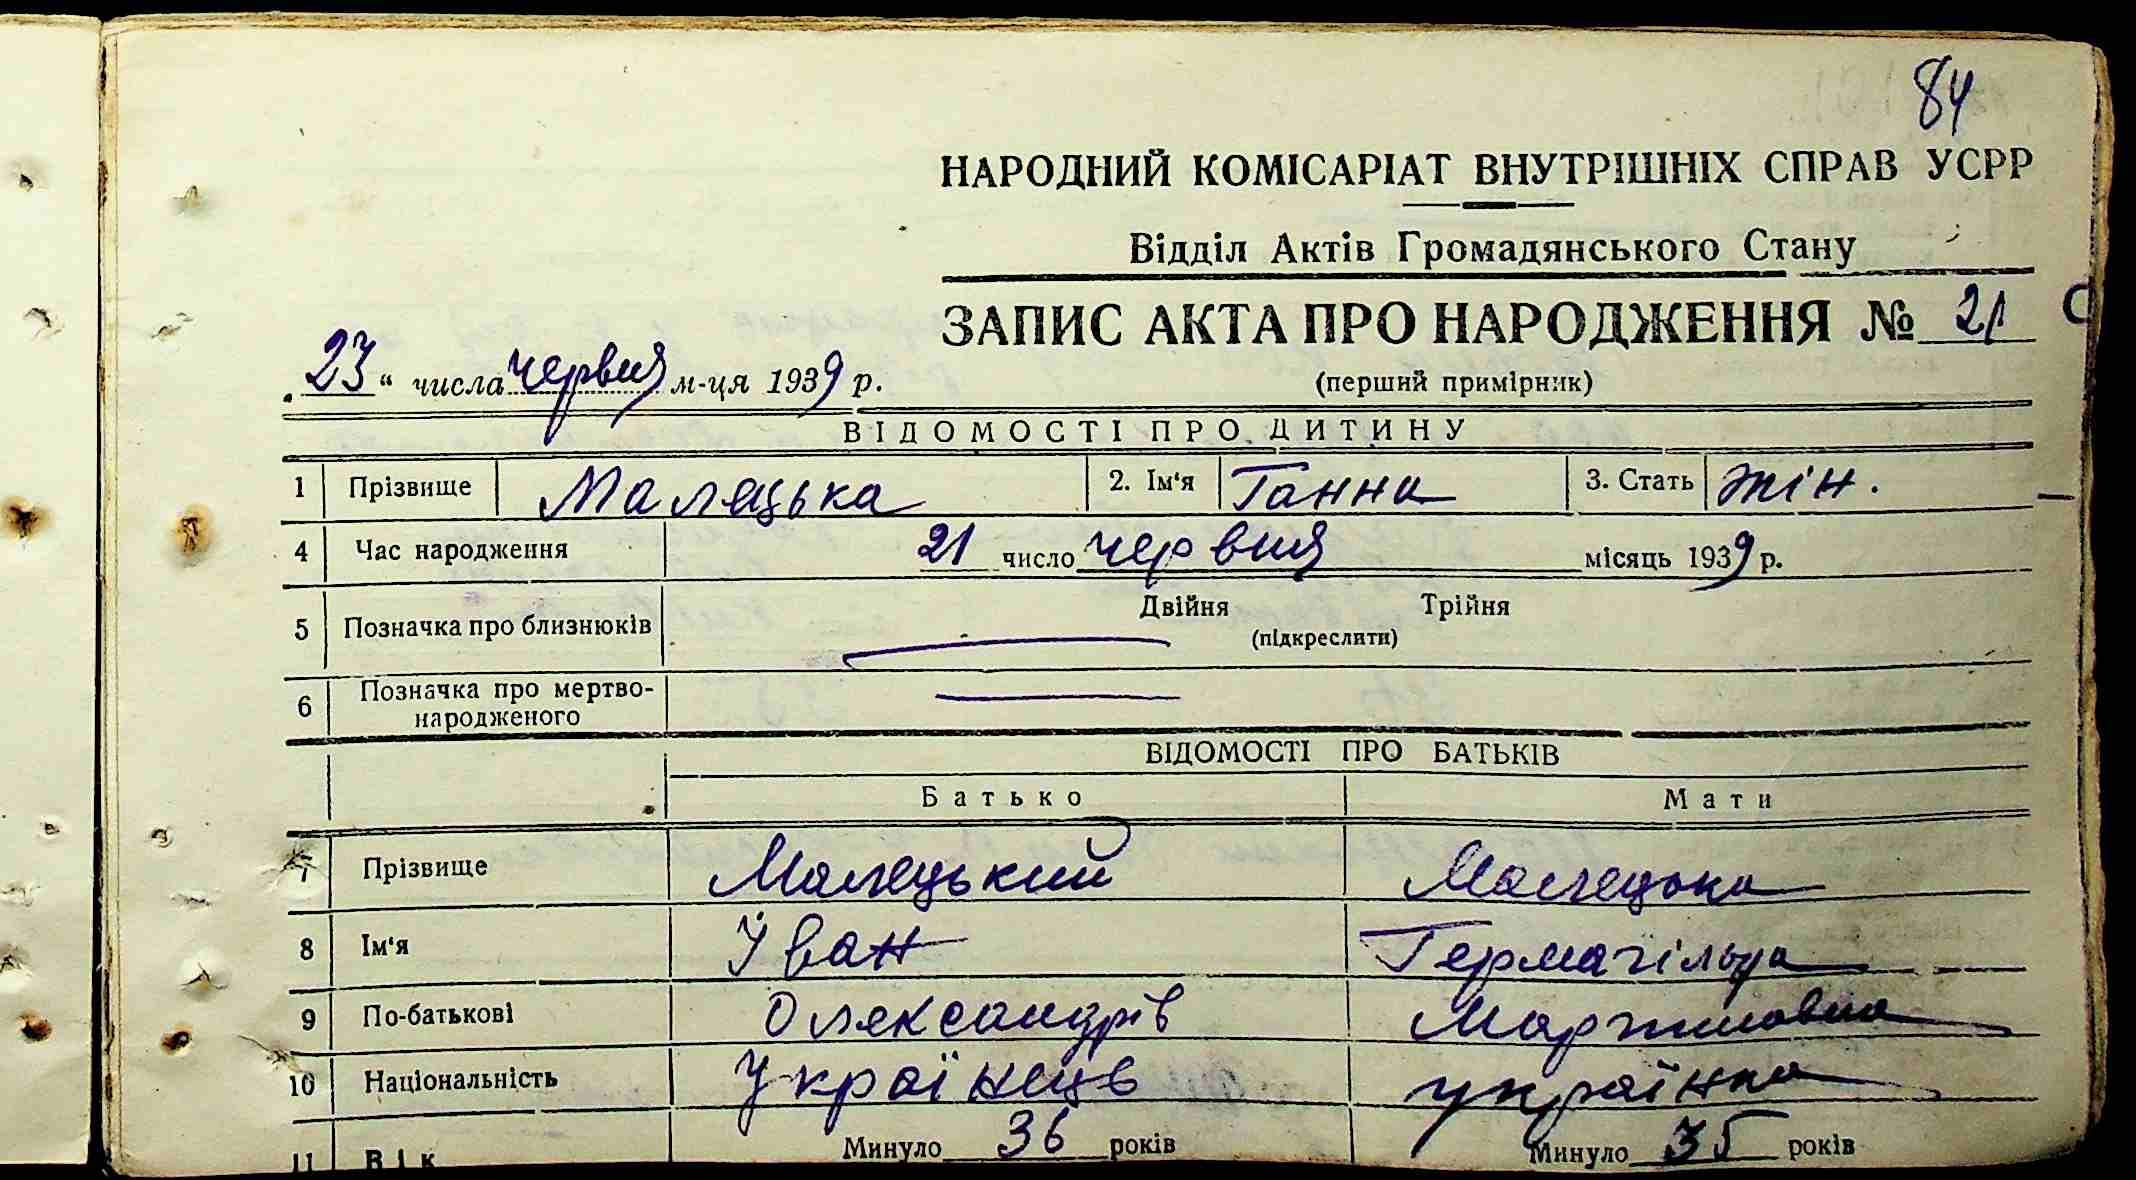 84
НАРОДНИЙ КОМІСАРІАТ ВНУТРІШНІХ СПРАВ УСРР
Відділ Актів Громадянського Стану
ЗАПИС АКТА ПРО НАРОДЖЕННЯ № 21
„23“ числа червня м-ця 1939 р.
(перший примірник)
ВІДОМОСТІ ПРО ДИТИНУ
1 Прізвище Малецька 2. Ім'я Ганна 3. Стать жін.
4 Час народження 21 число червня місяць 1939 р.
5 Позначка про близнюків Двійня Трійня
(підкреслити)
6 Позначка про мертво-
народженого
ВІДОМОСТІ ПРО БАТЬКІВ
Батько Мати
7 Прізвище Малецький Малецька
8 Ім'я Іван
9 По-батькові Олександрів Мартиновна
10 Національність Українець українка
11 Вік Минуло 36 років Минуло 35 років